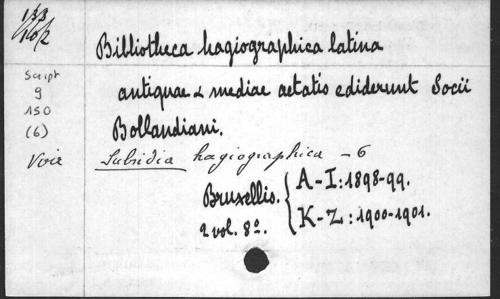 Bibliotheca hagiographica latina
antiquae & mediae aetatis ediderunt Socii
Bollandiani.
Subsidia hagiographica - 6
Bruxellis. { A-I: 1898-99.
K-Z: 1900-1901.
2 vol. 8º.
Script
9
150
(6)
Voir